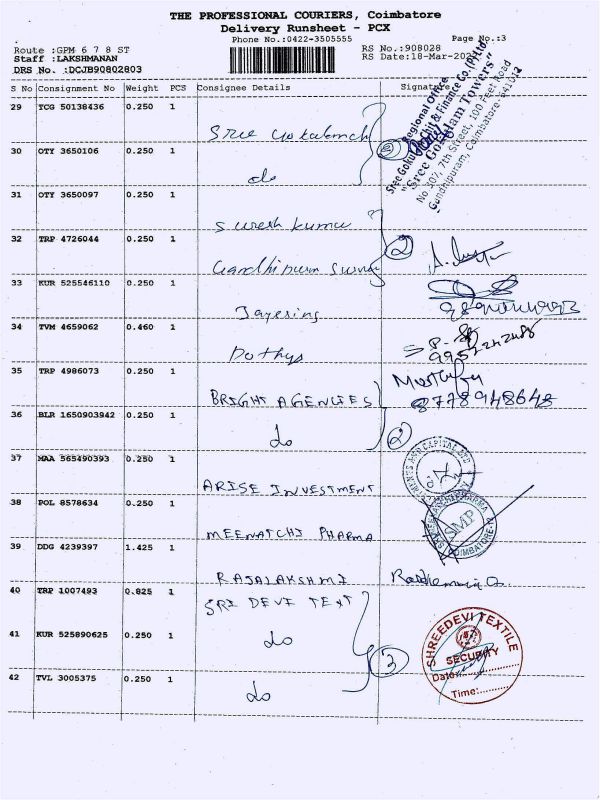 THE PROFESSIONAL COURIERS, Coimbatore
Delivery Runsheet - PCX
Phone No.:0422-3505555
Page No.:3
Route :GPM 6 7 8 ST
RS No.:908028
Staff :LAKSHMANAN
RS Date:18-Mar-202
DRS No. :DCJB90802803
S No Consignment No Weight PCS Consignee Details Signature
29 TCG 50138436 0.250 1
Sree Gokulam ch
30 OTY 3650106 0.250 1
do
31 OTY 3650097 0.250 1
Suresh kumar
32 TRP 4726044 0.250 1
Gandhipuram
33 KUR 525546110 0.250 1
34 TVM 4659062 0.460 1
Pothys
35 TRP 4986073 0.250 1
BRIGHT AGENCIES
8778948648
36 BLR 1650903942 0.250 1
do
37 MAA 565490393 0.250 1
ARISE INVESTMENT
38 POL 8578634 0.250 1
MEENATCHI PHARMA
39 DDG 4239397 1.425 1
RAJALAKSHMI
40 TRP 1007493 0.825 1
SRI DEVI TEXT
41 KUR 525890625 0.250 1
do
42 TVL 3005375 0.250 1
do
2
2
2
3
Regional Office
Sree Gokulam Chit & Finance Co.(P) Ltd.
"Sree Gokulam Towers"
No 307, 7th Street, 100 Feet Road
Gandhipuram, Coimbatore-641012
SMP
COIMBATORE
SHREEDEVI TEXTILE
SECURITY
Date:
Time: